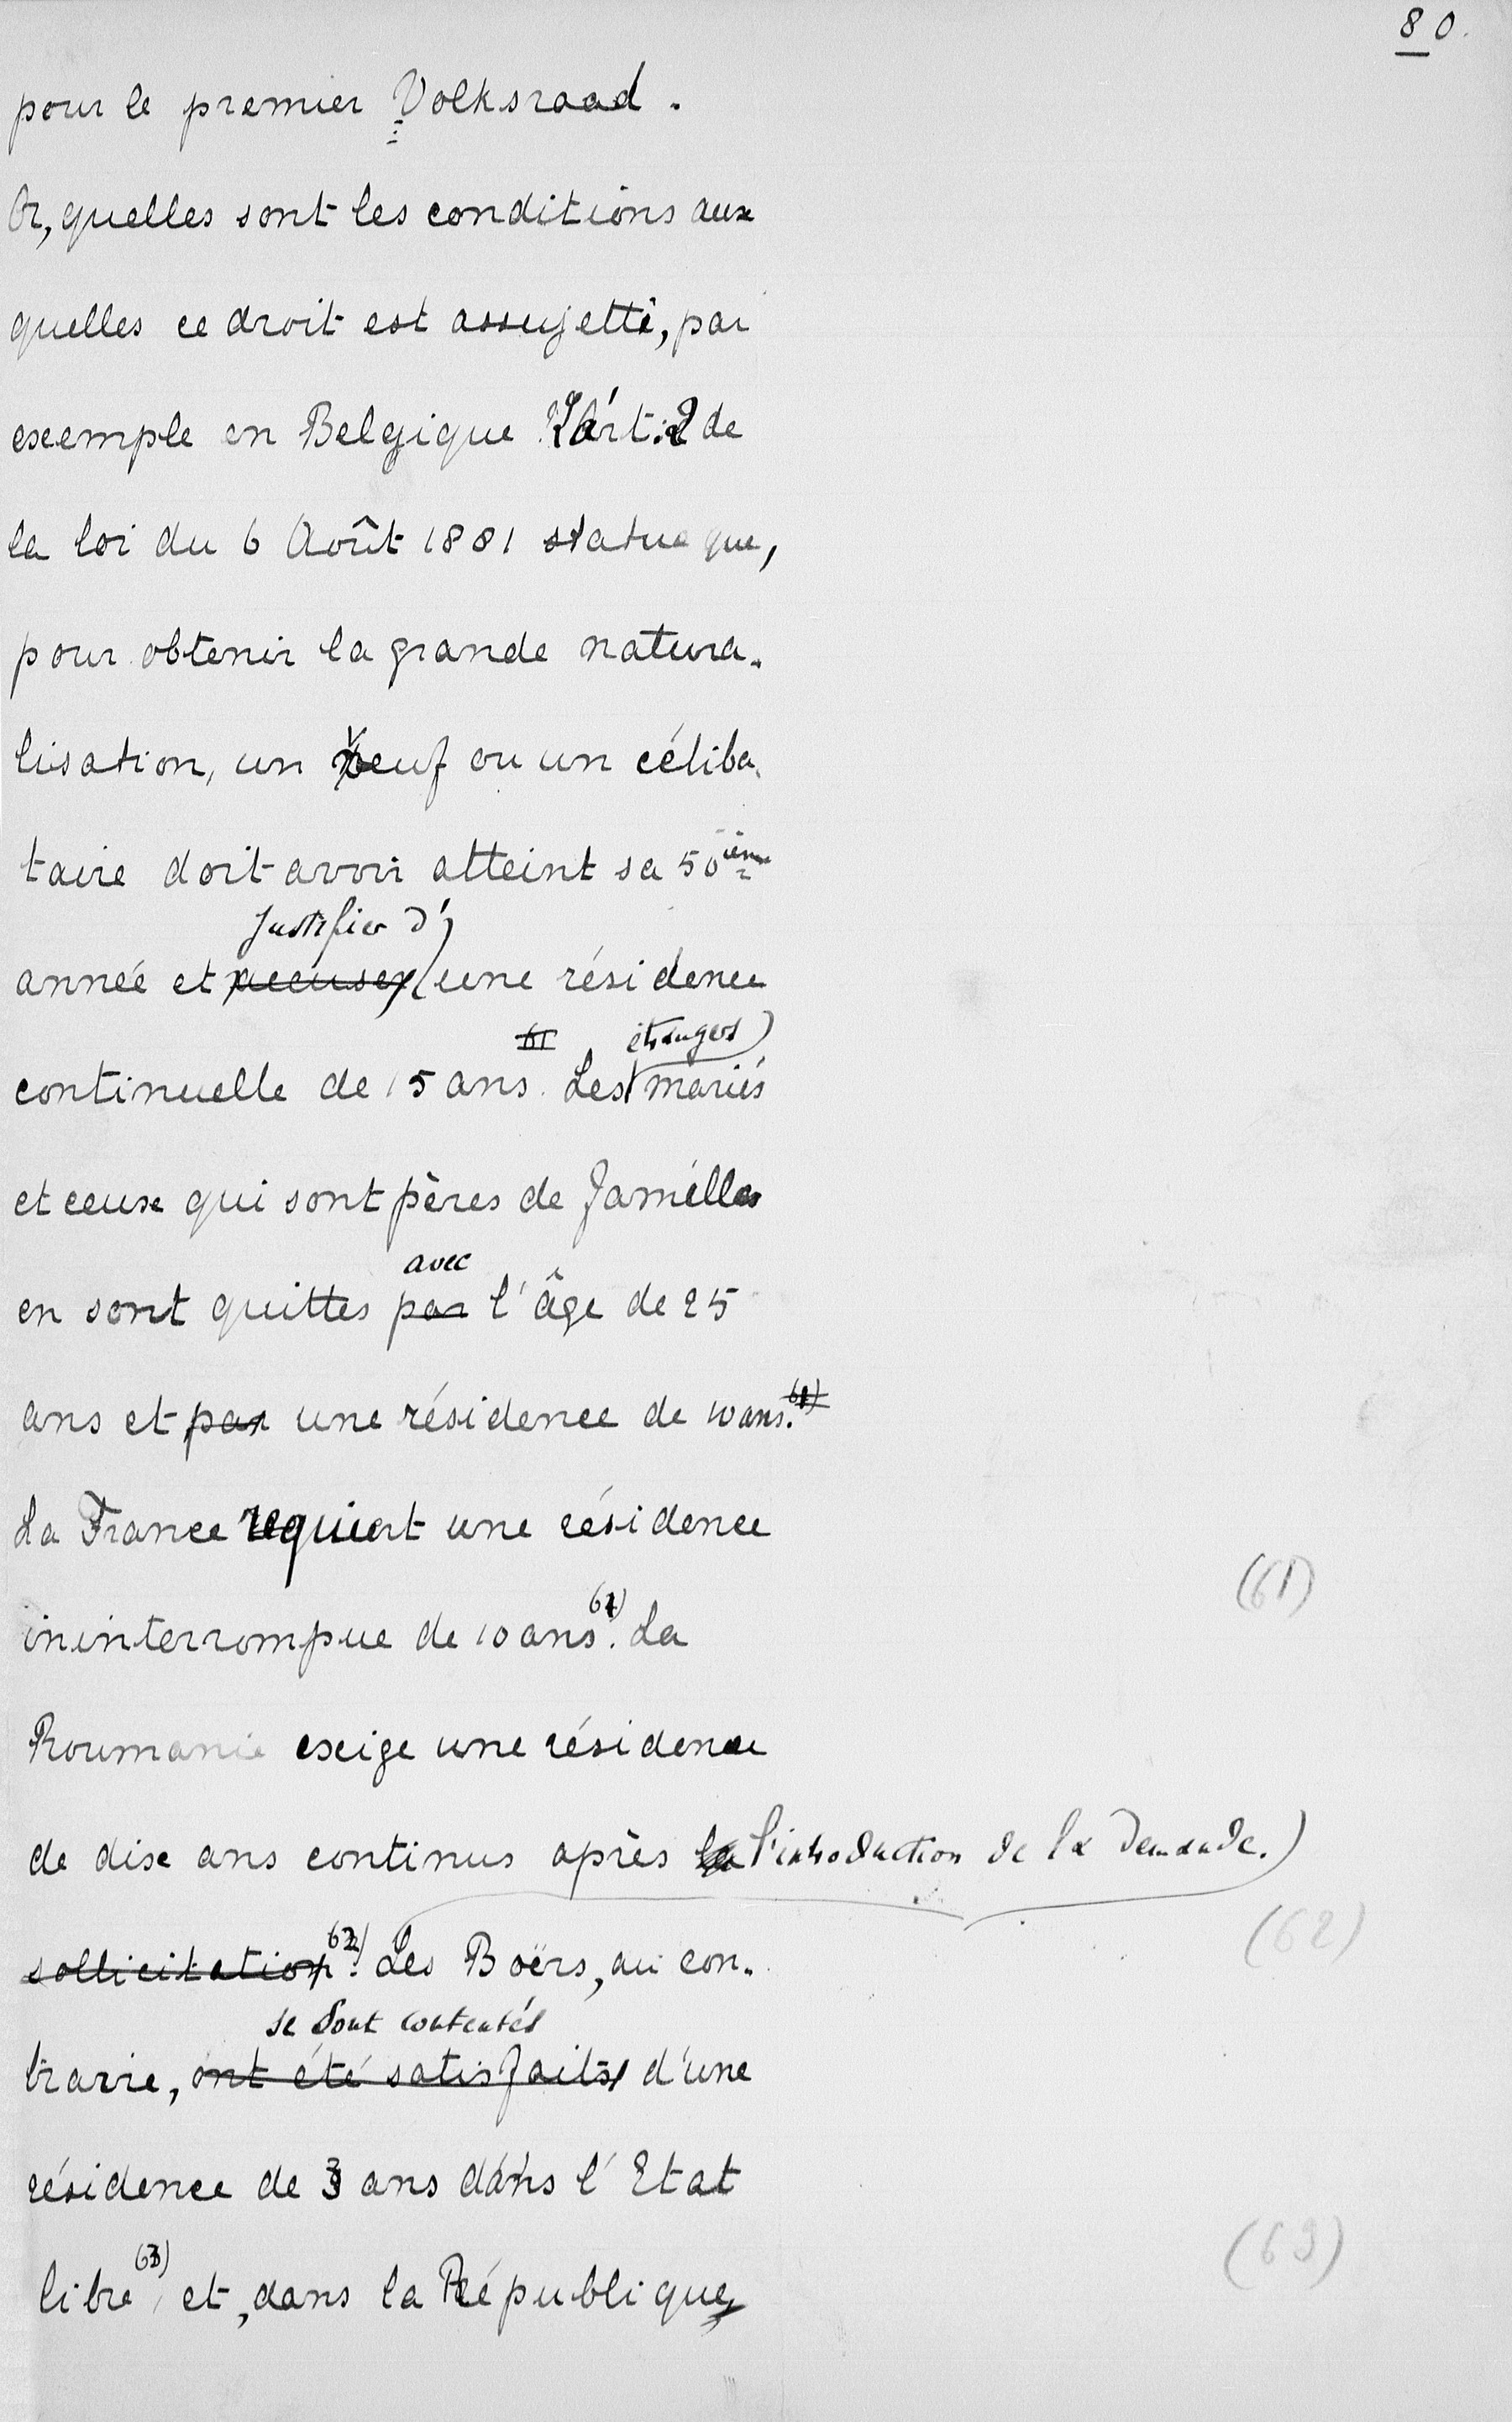 80.
pour le premier Volksraad.
Or, quelles sont les conditions aux
quelles ce droit est assujetti, par
exemple en Belgique ? L'art. 2 de
la loi du 6 Août 1881 statue que,
pour obtenir la grande natura-
lisation, un veuf ou un céliba-
taire doit avoir atteint sa 50ième
justifier d'
année et accuser une résidence
61 étrangers
continuelle de 15 ans. Les mariés
et ceux qui sont pères de familles
avec
en sont quittes par l'âge de 25
ans et par une résidence de 10 ans. 61)
La France requiert une résidence
(61)
ininterrompue de 10 ans. 61) La
Roumanie exige une résidence
de dix ans continus après la l'introduction de la demande.)
(62)
sollicitation. 62) Les Boërs, au con-
se sont contentés
traire, ont été satisfaits d'une
résidence de 3 ans dans l'Etat
(63)
libre 63) et, dans la République,